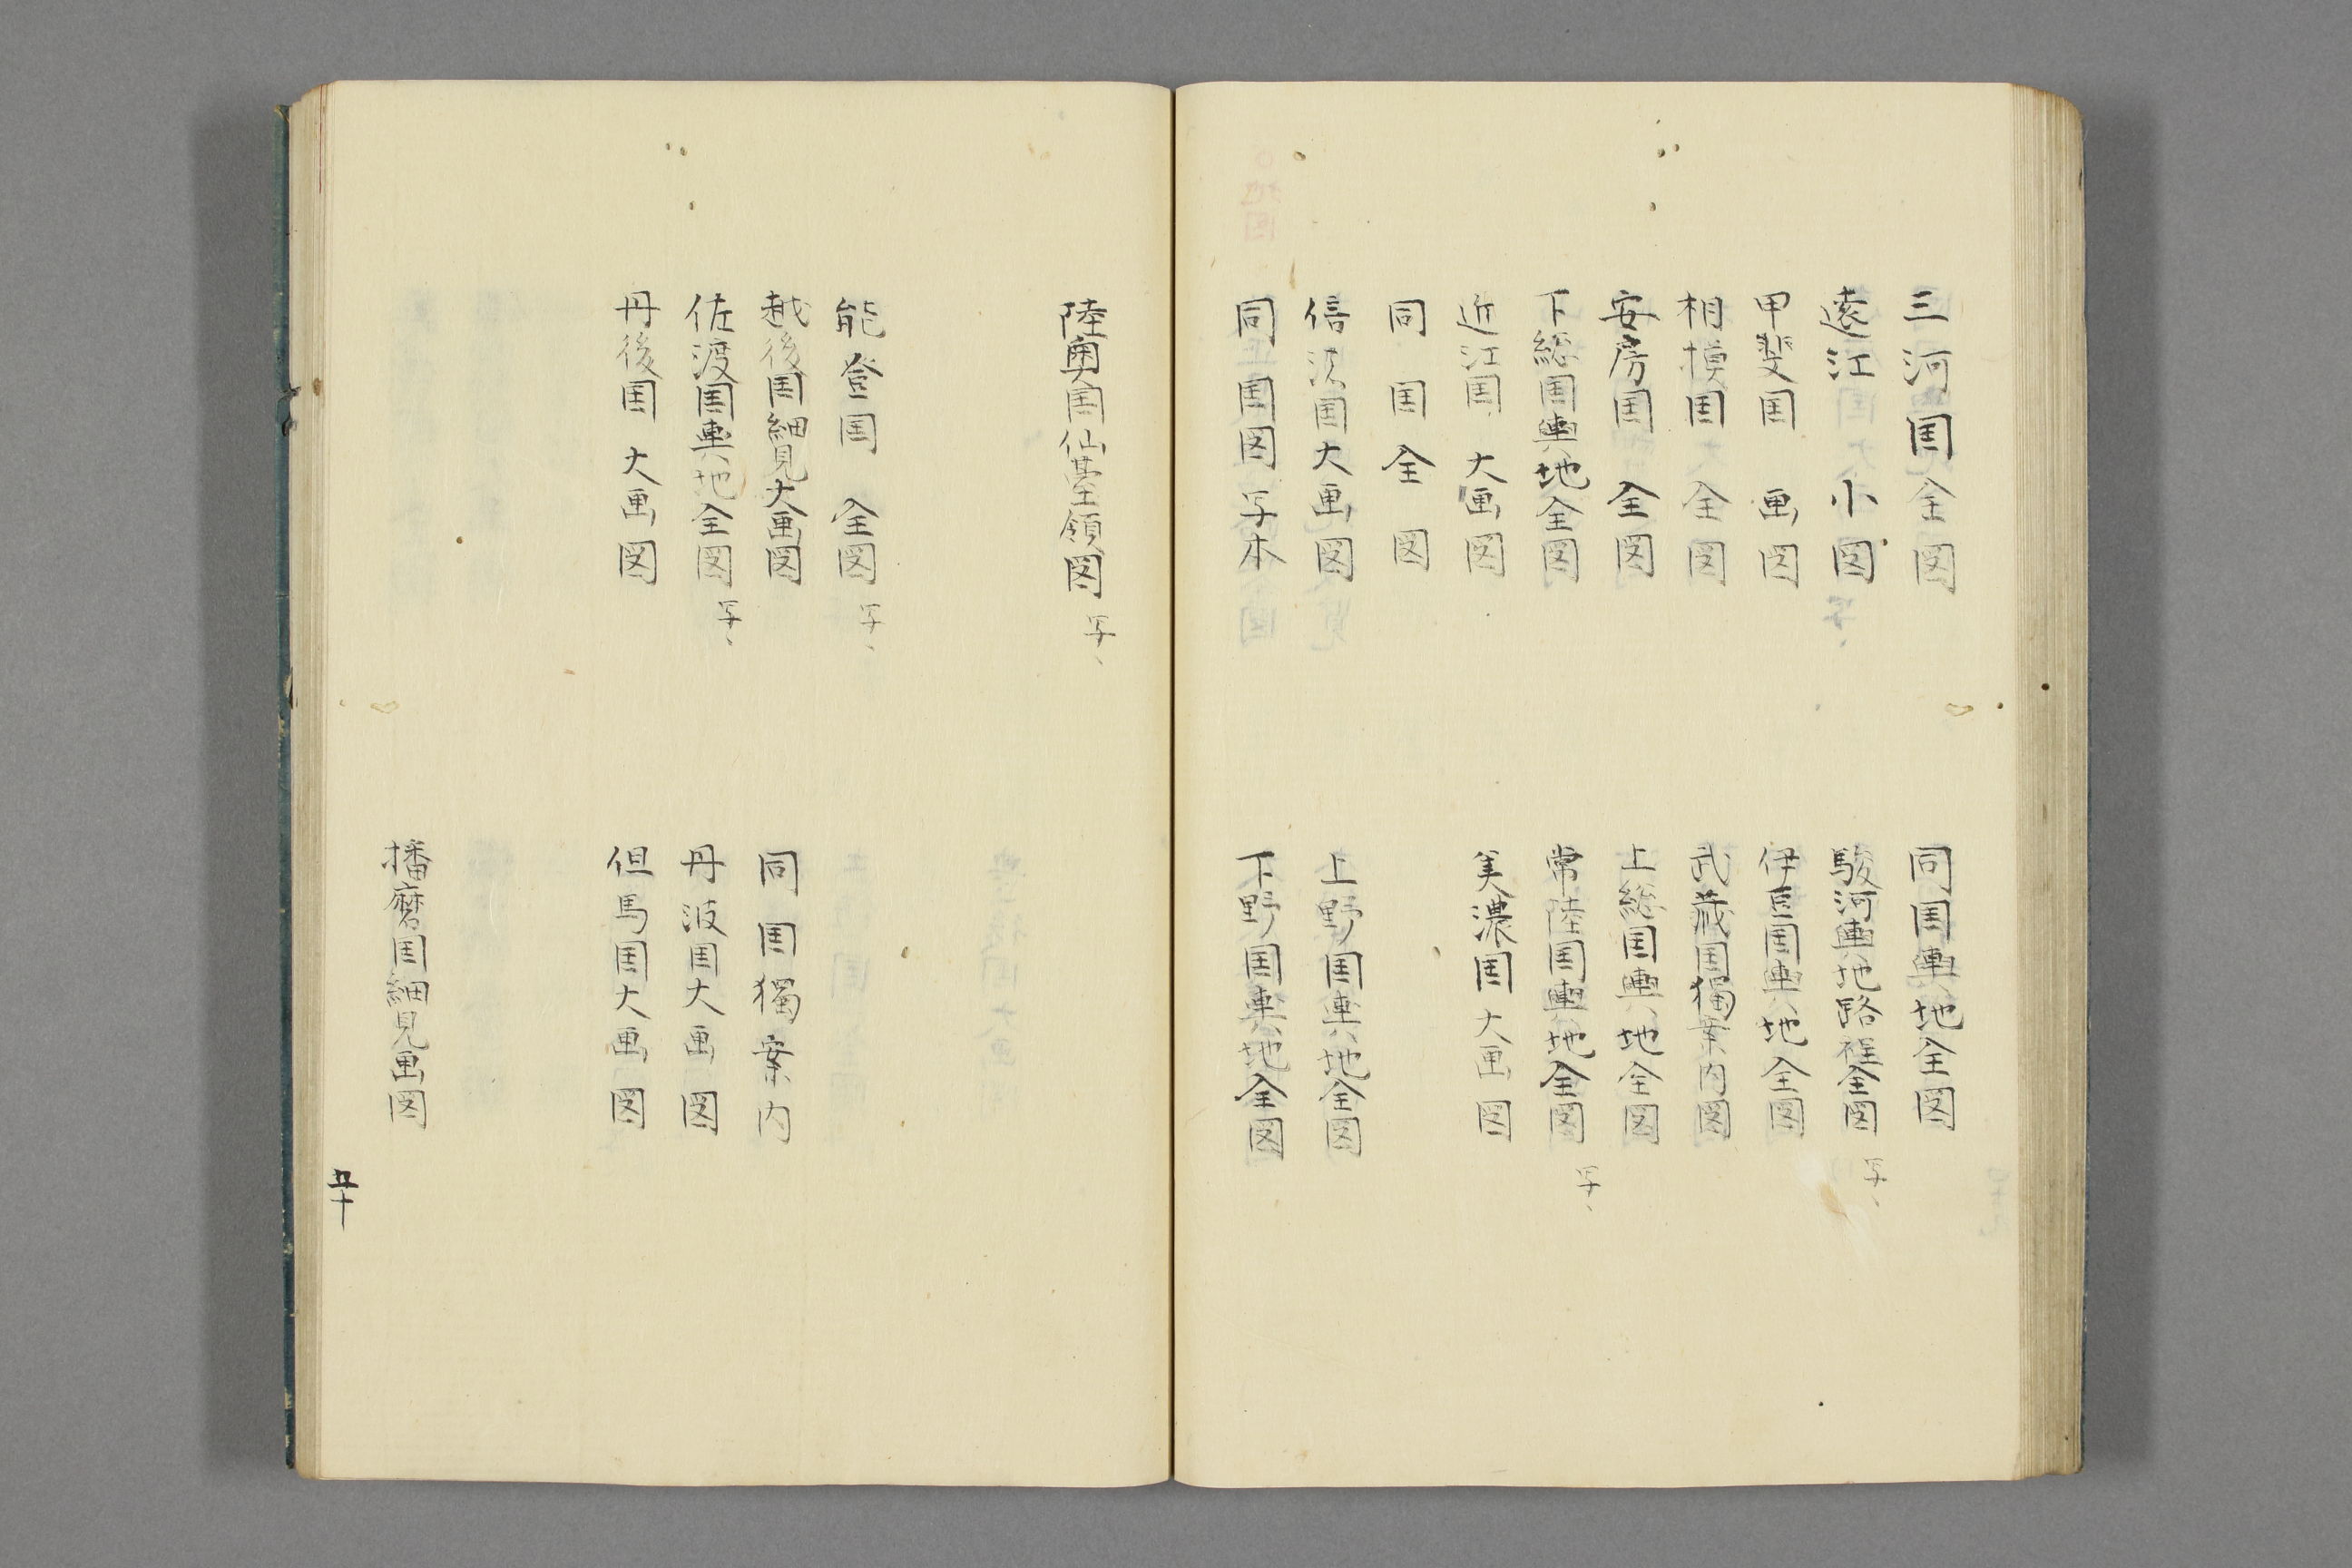 三河囯全図
同囯輿地全図
遠江小図
駿河輿地路程全図 写、
甲斐囯画図
伊豆囯輿地全図
相摸囯全図
武蔵囯獨案内図
安房囯全図
上総囯輿地全図
下総囯輿地全図
常陸囯輿地全図 写、
近江囯大画図
美濃囯大画図
同囯全図
信濃囯大画図
上野囯輿地全図
同囯図写本
下野囯輿地全図
陸奥囯仙䑓領図 写、
能登囯全図 写、
越後囯細見大画図
同囯獨案内
佐渡囯輿地全図 写、
丹波囯大画図
丹後囯大画図
但馬囯大画図
播磨囯細見画図
五十